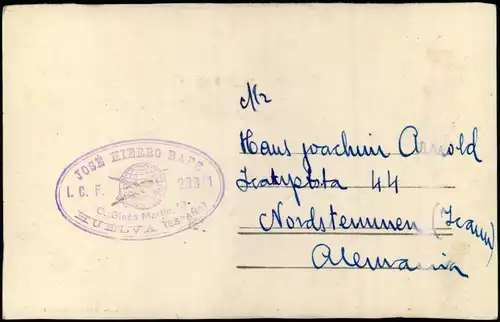 JOSÉ HIERRO BAEZ
I. C. F. 293/1
C. Ginés Martín,
HUELVA (ESPAÑA)
Mr
Hans Joachim Arnold
44
Nordstemmen (Hann)
Alemania